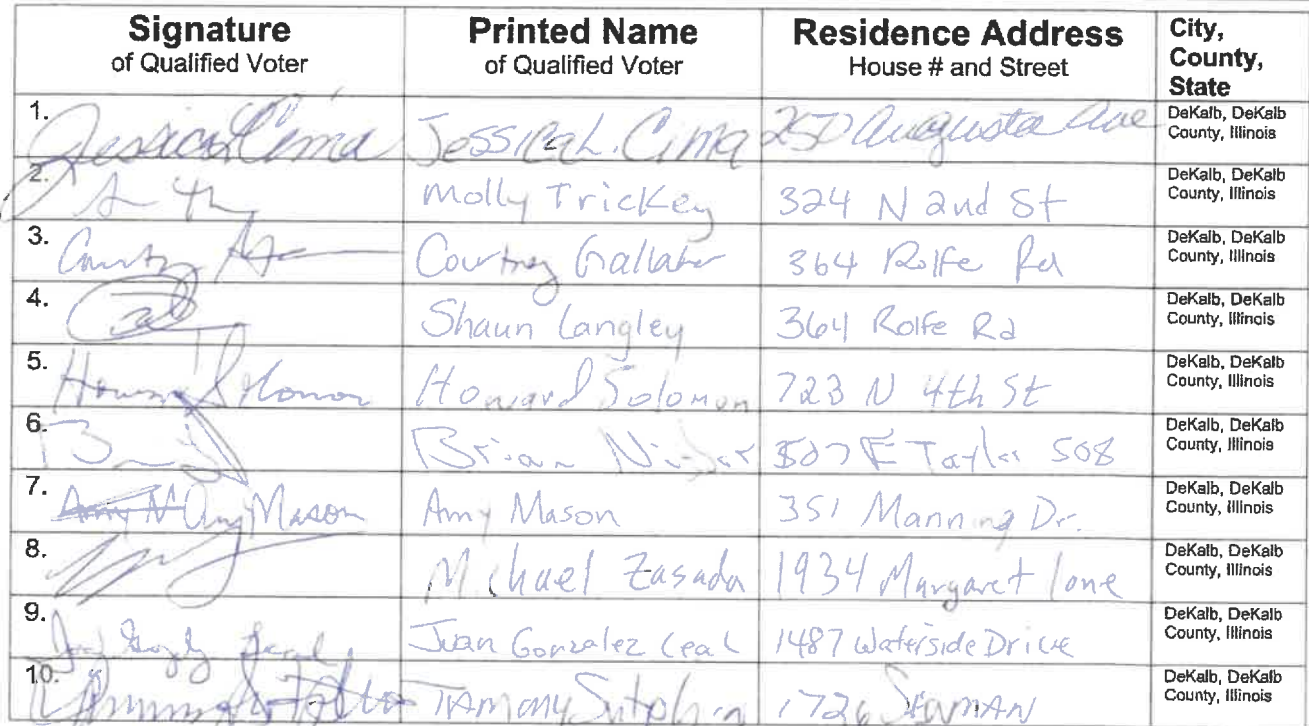 Signature Printed Name Residence Address City,
of Qualified Voter of Qualified Voter House # and Street County,
State
1. Jessica Cima Jessica L. Cima 250 Augusta Ave DeKalb, DeKalb
County, Illinois
2. Molly Trickey 324 N 2nd St DeKalb, DeKalb
County, Illinois
3. Courtney Gallaher 364 Rolfe Rd DeKalb, DeKalb
County, Illinois
4. Shaun Langley 364 Rolfe Rd DeKalb, DeKalb
County, Illinois
5. Howard Solomon Howard Solomon 723 N 4th St DeKalb, DeKalb
County, Illinois
6. Brian 507 E Taylor 508 DeKalb, DeKalb
County, Illinois
7. Amy Mason Amy Mason 351 Manning Dr. DeKalb, DeKalb
County, Illinois
8. Michael Zasada 1934 Margaret lane DeKalb, DeKalb
County, Illinois
9. Juan Gonzalez Leal 1487 Waterside Drive DeKalb, DeKalb
County, Illinois
10. Tammy Sutphin 1726 DeKalb, DeKalb
County, Illinois